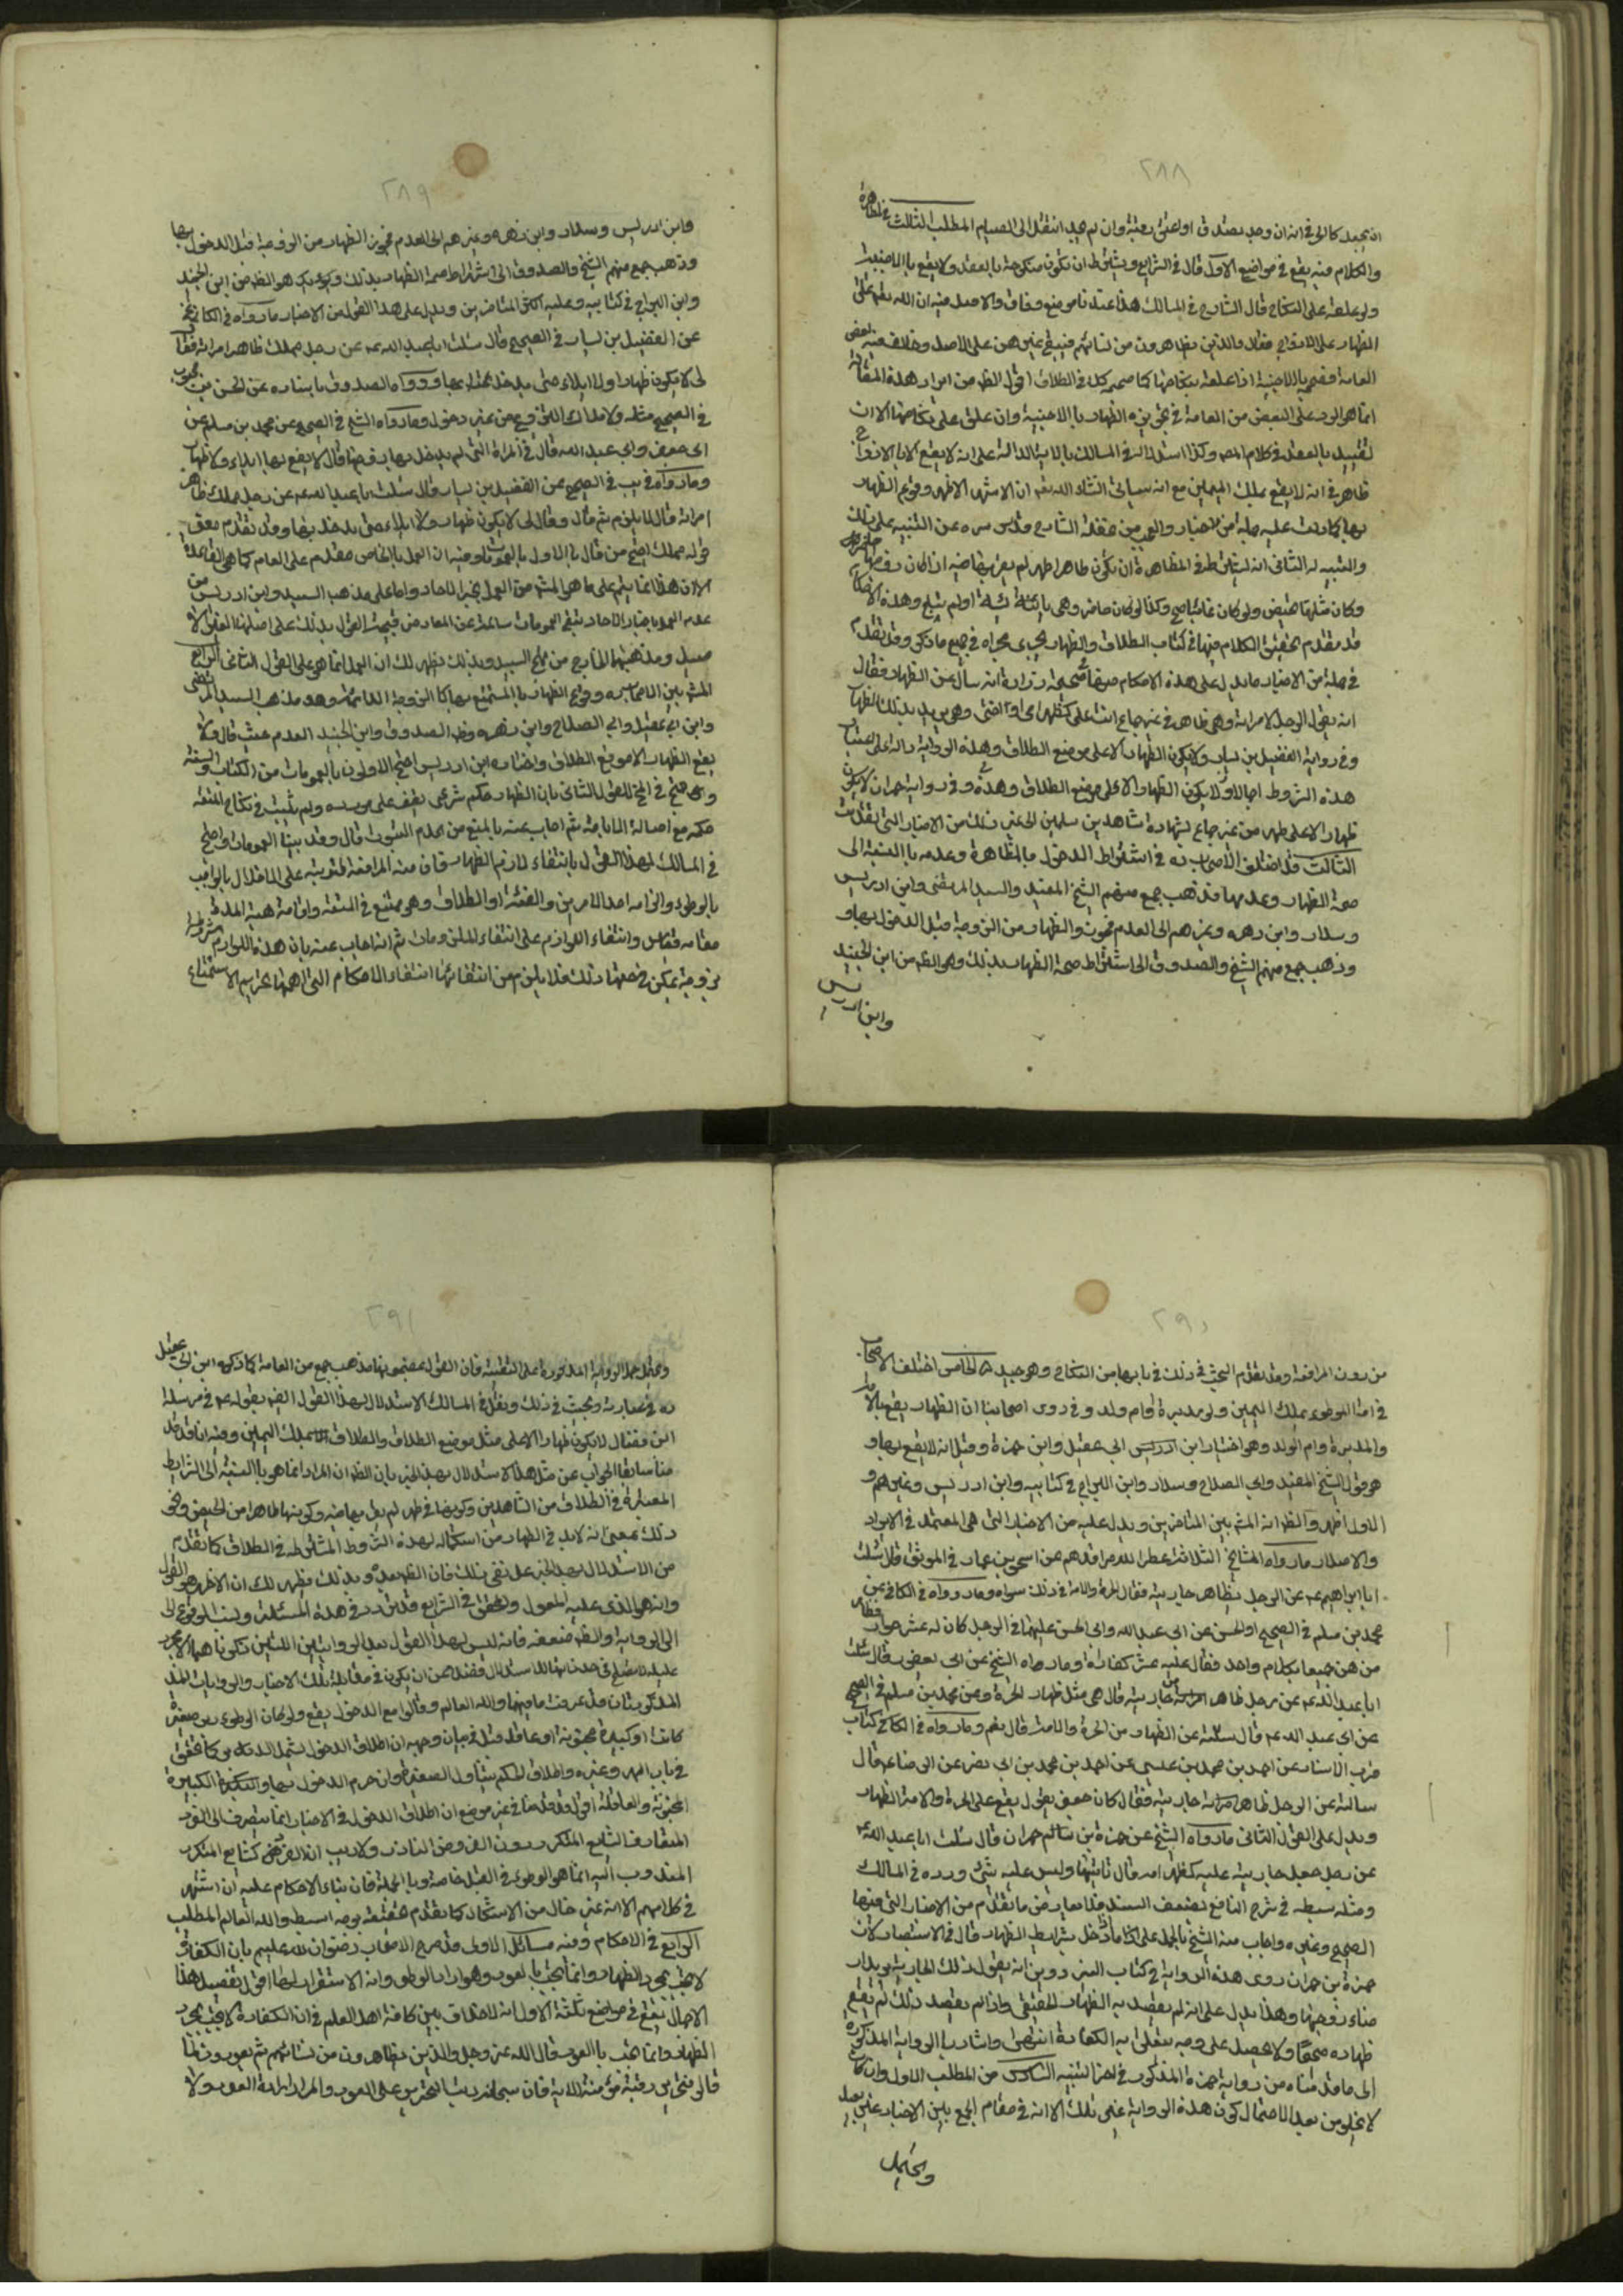 ٢٨٨
ان يجد كما لو في انه ان وجد تصدق او اعتق رقبة وان لم يجد انتقل الى الصيام المطلب الثالث في المظاهرة
والكلام فيه يقع في مواضع الاول قال في الشرايع ويشترط ان تكون منكوحة بالعقد ولا يقع بالاجنبية
ولو علقه على النكاح قال الشارح في المسالك هذا عندنا موضع وفاق والاصل فيه ان الله تعالى علق
الظهار على الازواج فقال والذين يظاهرون من نسائهم فيبقى غيرهن على الاصل وخالف فيه بعض
العامة فقيحه بالاجنبية اذا علقه بنكاحها كما صححه كذلك في الطلاق اقول الظ من ايراد هذه المقالة
انما هو الرد على البعض من العامة في تجويزه الظهار بالاجنبية وان علق على نكاحها الا ان
تقييد بالعقد في كلام المص وكذا استدلاله في المسالك بالاية الدالة على انه لا يقع الا بالازواج
ظاهر في انه لا يقع بملك اليمين مع انه سيأتي انشاء الله تعم ان الاشهر الاظهر وقوع الظهار
بها كما دلت عليه جملة من الاخبار والعجب من غفلة الشارح قدس سره عن التنبيه على ذلك
والتنبيه له الثاني انه يشترط في المظاهرة ان تكون طاهرا طهر لم يقربها فيه اذا كان زوجها حاضرا
وكان مثلها تحيض ولو كان غائبا صح وكذا لو كان حاضرا وهي يائسة او لم تبلغ وهذه الاحكام
قد تقدم تحقيق الكلام فيها في كتاب الطلاق والظهار يجري مجراه في جميع ما ذكر وقد تقدم
في جملة من الاخبار ما يدل على هذه الاحكام صحيحة زرارة انه سأل عن الظهار فقال
انه يقول الرجل لامرأته وهي طاهر في غير جماع انت علي كظهر امي او اختي وهو يريد بذلك الظهار
وفي رواية الفضيل بن يسار ولا يكون الظهار الا على موضع الطلاق وهذه الرواية دالة على اعتبار
هذه الشروط اجمالا ولا يكون الظهار الا على موضع الطلاق وهذه وفي رواية حمران لا يكون
ظهار الا على طهر من غير جماع بشهادة شاهدين مسلمين الى غير ذلك من الاخبار التي تقدمت
الثالث قد اختلف الاصحاب ره في اشتراط الدخول بالمظاهرة وعدمه بالنسبة الى
صحة الظهار وعدمها فذهب جمع منهم الشيخ المفيد والسيد المرتضى وابن ادريس
وسلار وابن زهره وغيرهم الى العدم فجوزوا الظهار من الزوجة قبل الدخول بها و
وذهب جمع منهم الشيخ والصدوق الى اشتراط صحة الظهار بذلك وهو الظ من ابن الجنيد
وابن ادريس
٢٨٩
وابن ادريس وسلار وابن زهره وغيرهم الى العدم فجوزوا الظهار من الزوجة قبل الدخول بها
وذهب جمع منهم الشيخ والصدوق الى اشتراط صحة الظهار بذلك وهو الظ من ابن الجنيد
وابن البراج في كتابيه وعليه اكثر المتاخرين ويدل على هذا القول من الاخبار ما رواه في الكافي
عن الفضيل بن يسار في الصحيح قال سئلت ابا عبد الله عم عن رجل مملك ظاهر امراته فقال
لي لا يكون ظهار ولا ايلاء حتى يدخل بها ورواه الصدوق باسناده عن الحسن بن محبوب
في الصحيح مثله وما رواه الشيخ في الصحيح عن محمد بن مسلم عن
ابي جعفر وابي عبد الله قال في المراة التي لم يدخل بها زوجها قال لا يقع بها ايلاء ولا ظهار
وما رواه في يب في الصحيح عن الفضيل بن يسار قال سئلت ابا عبد الله عم عن رجل مملك ظاهر
امراته قال لا يلزم ثم قال وقال لي لا يكون ظهار ولا ايلاء حتى يدخل بها وقد تقدم معنى
قوله مملك احتج من قال بالاول بالعموم وفيه ان العمل بالخاص مقدم على العام كما هو القاعدة
الا ان هذا انما يتم على ما هو المشهور من العمل بخبر الاحاد واما على مذهب السيد وابن ادريس من
عدم العمل باخبار الاحاد تبقى العمومات سالمة عن المعارض فيتجه القول بذلك على اصلهما
وبذلك يظهر لك ان العمل انما هو على القول الثاني الرابع
المشهور بين الاصحاب ره وقوع الظهار بالمستمتع بها كالزوجة الدائمة وهو مذهب السيد المرتضى
وابن ابي عقيل وابي الصلاح وابن زهره وظ الصدوق وابن الجنيد العدم حيث قال ولا
يقع الظهار الا موقع الطلاق واختاره ابن ادريس احتج الاولون بالعمومات من الكتاب والسنة
واحتج في المخ للقول الثاني بان الظهار حكم شرعي يقف على مورده ولم يثبت في نكاح المتعة
حكمه مع اصالة الاباحة ثم اجاب عنه بالمنع من عدم الثبوت قال وقد بينا العمومات واحتج
في المسالك لهذا القول بانتفاء لازم الظهار فان منه المرافعة المترتبة على الاخلال بالواجب
بالوطوء والزامه احد الامرين والفئة او الطلاق وهو ممتنع في المتعة واقامة هبة المدة
مقامه قياس وانتفاء اللوازم على انتفاء الملزومات ثم انه اجاب عنه بان هذه اللوازم مشروطة
بزوجة يمكن في حقها ذلك فلا يلزم من انتفائها انتفاء الاحكام التي اهمها تحريم الاستمتاع
٢٩٠
من دون المرافعة وقد تقدم البحث في ذلك في بابها من النكاح وهو جيد الخامس اختلف الاصحاب
في الامة الموطوءة بملك اليمين ولو مدبرة او ام ولد وفي روى اصحابنا ان الظهار يقع بالامة
والمدبرة وام الولد وهو اختيار ابن ابي عقيل وابن حمزة وقيل انه لا يقع بها و
هو قول الشيخ المفيد وابي الصلاح وسلار وابن البراج في كتابيه وابن ادريس وغيرهم و
الاول اظهر والظ انه المشهور بين المتاخرين ويدل عليه من الاخبار التي هي المعتمد في الايراد
والاصدار ما رواه المشايخ الثلاثة عطر الله مراقدهم عن اسحق بن عمار في الموثق قال سئلت
ابا ابراهيم عم عن الرجل يظاهر جاريته فقال الحرة والامة في ذلك سواء وما رواه في الكافي عن
محمد بن مسلم في الصحيح او الحسن عن ابي عبد الله وابي الحسن عليهما في الرجل كان له عشر جوار فظاهر
من هن جميعا بكلام واحد فقال عليه عشر كفارات وما رواه الشيخ عن ابن ابي يعفور قال سئلت
ابا عبد الله عم عن رجل ظاهر من جاريته قال هي مثل ظهار الحرة وعن محمد بن مسلم في الصحيح
عن ابي عبد الله عم قال سئلته عن الظهار من الحرة والامة قال نعم وما رواه في الكافي وكتاب
قرب الاسناد عن احمد بن محمد بن عيسى عن احمد بن محمد بن ابي نصر عن الرضا عم قال
سالته عن الرجل ظاهر من جاريته فقال كان جعفر يقول يقع على الحرة والامة الظهار
ويدل على القول الثاني ما رواه الشيخ عن حمزة بن حمران قال سئلت ابا عبد الله عم
عن رجل جعل جاريته عليه كظهر امه قال ياتيها وليس عليه شيئ ورده في المسالك
ومثله سبطه في شرح النافع بضعف السند فلا يعارض ما تقدم من الاخبار التي فيها
الصحيح وغيره واجاب عنه الشيخ بالحمل على انه اخل بشرايط الظهار قال في الاستبصار لان
حمزة بن حمران روى هذه الرواية في كتاب البزوفري انه يقول ذلك لجاريته يريد ارضاء
زوجته وهذا يدل على انه لم يقصد به الظهار الحقيقي واذا لم يقصد ذلك لم يقع
ظهاره صحيحا ولا يحصل على وجه يتعلق به الكفارة انتهى واشار بالرواية المذكورة
الى ما قدمناه من رواية حمزة المذكور في اخر التنبيه السادس من المطلب الاول وان كان
لا يخلو من بعد لاحتمال كون هذه الرواية غير تلك الا انه في مقام الجمع بين الاخبار غير بعيد
ويحتمل
٢٩١
ويحتمل حمل الرواية المذكورة على التقية فان القول بمضمونها مذهب جمع من العامة كما ذكره ابن ابي عقيل
ره في عبارته وبحث في ذلك ونقل في المسالك الاستدلال لهذا القول ايضا بقوله عم في مرسلة
ابن فضال لا يكون ظهار الا على مثل موضع الطلاق والطلاق لا يقع بملك اليمين وفيه انا قد قد
منا سابقا الجواب عن مثل هذا الاستدلال بهذا الخبر بان الظ ان المراد انما هو بالنسبة الى الشرايط
المعتبرة في الطلاق من الشاهدين وكونها في طهر لم يقربها فيه وكونها طاهرا من الحيض ونحو
ذلك بمعنى انه لابد في الظهار من استكماله لهذه الشروط المشترطة في الطلاق كما تقدم
من الاستدلال بهذا الخبر على نفي ذلك فان الظ بعده وبذلك يظهر لك ان الاظهر هو القول
وانه هو الذي عليه المعول والمحقق في الشرايع قد تردد في هذه المسئلة ونسب الوقوع الى
الرواية والظ ضعفه فانه ليس لهذا القول بعد الروايتين اللتين ذكرناهما الا مجرد
عليه لا تصلح في حد ذاتها للاستدلال فضلا عن ان يكون في مقابلة تلك الاخبار والروايات المذ
المذكورتان قد عرفت ما فيهما والله العالم وقالوا مع الدخول يقع ولو كان الوطوء دبرا صغيرة
كانت او كبيرة مجنونة او عاقلة قيل في بيان وجهه ان اطلاق الدخول يشمل الدبر كما تحقق
في باب المهر وغيره واطلاق الحكم يتناول الصغيرة وان حرم الدخول بها والكبيرة
المجنونة والعاقلة اقول قد قدمنا في غير موضع ان اطلاق الدخول في الاخبار انما ينصرف الى الفرد
المتعارف الشايع المتكرر دون الفروض النادرة ولا ريب ان الفرض الشايع المتكرر
المندوب اليه انما هو الوطوء في القبل خاصة وبالجملة فان بناء الاحكام عليه وان اشتهر
في كلامهم الا انه غير خال من الاشكال كما تقدم تحقيقه بوجه ابسط والله العالم المطلب
الرابع في الاحكام وفيه مسائل الاولى قد صرح الاصحاب رضوان الله عليهم بان الكفارة
لا تجب بمجرد الظهار وانما تجب بالعود وهو ارادة الوطي وانه الاستقرار لها اقول تفصيل هذا
الاجمال يقع في مواضع ثلثة الاول انه لا خلاف بين كافة اهل العلم في ان الكفارة لا تجب بمجرد
الظهار وانما تجب بالعود قال الله عز وجل والذين يظاهرون من نسائهم ثم يعودون لما
قالوا فتحرير رقبة مؤمنة الاية فان سبحانه رتب التحرير على العود والمراد ارادة العود ولا